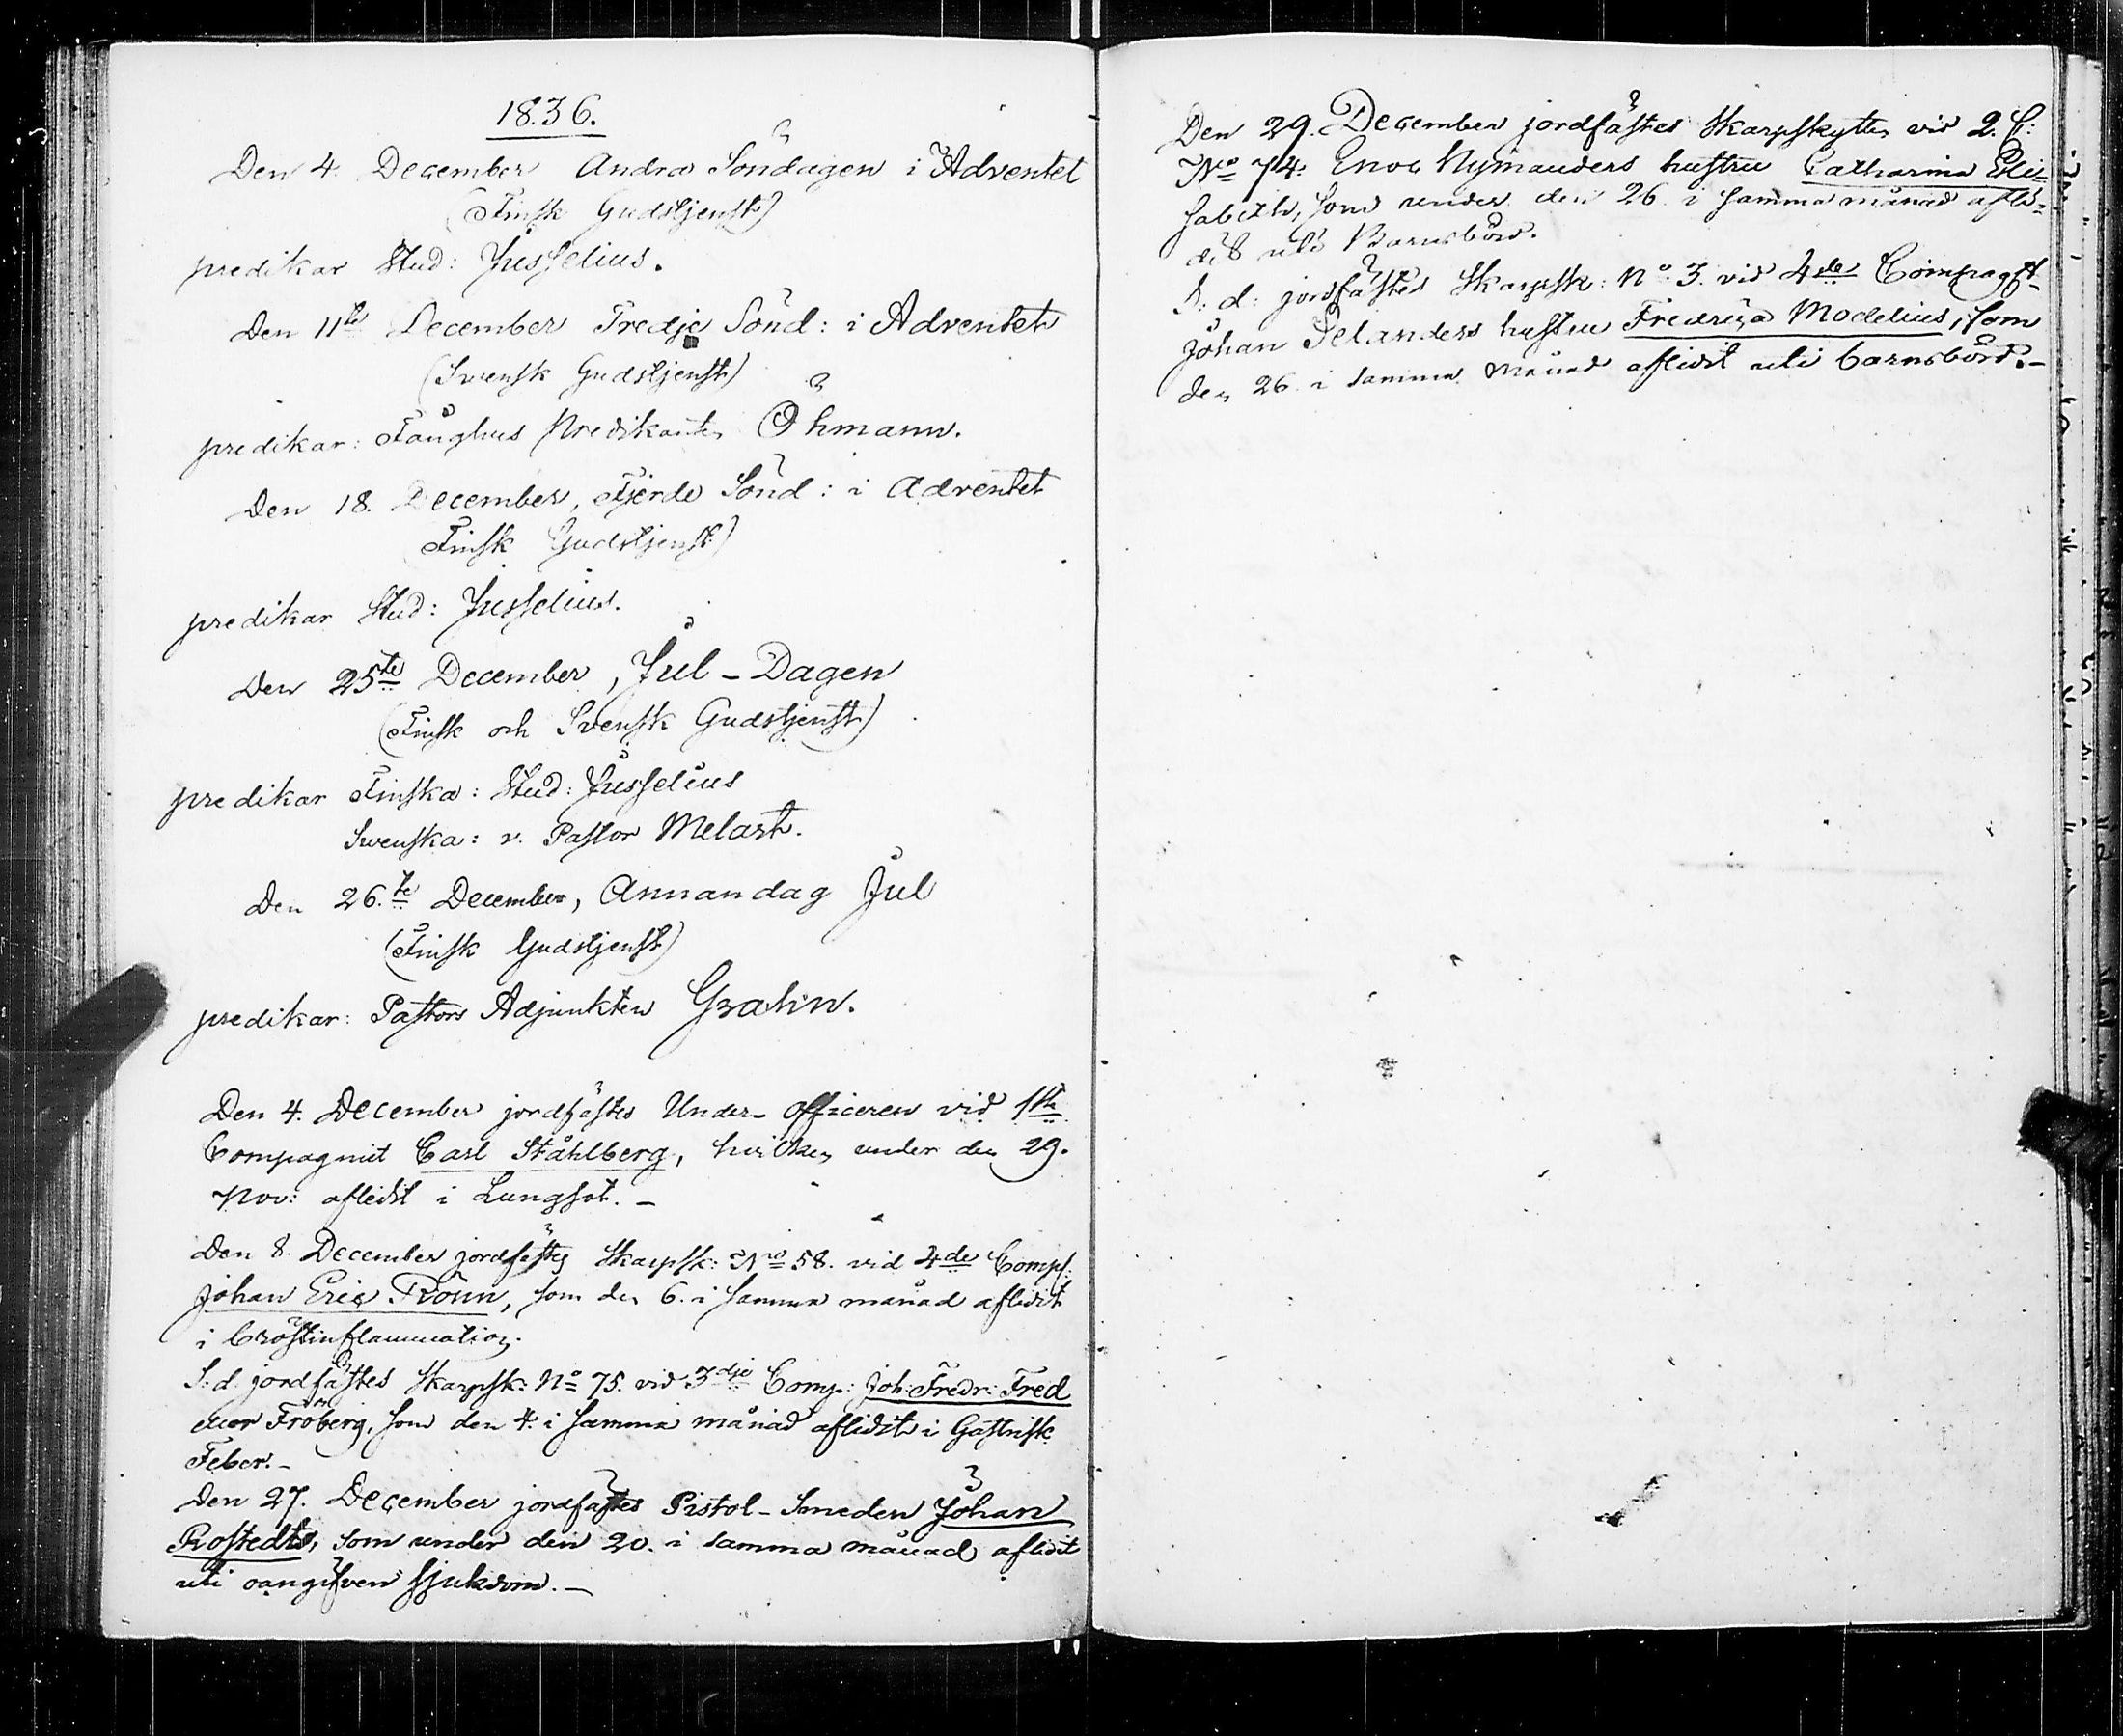 1836.
Den 4. December Andra Söndagen i Adventet
(Finsk Gudstjenst)
predikar Stud: Jusselius.
Den 11te December Tredje Sönd: i Adventet
(Swensk Gudstjenst)
predikar: Fånghus Predikanten Öhmann.
Den 18. December, Fjerde Sönd: i Adventet
Finsk Gudstjenst)
predikar Stud: Jusselius.
Den 25te December, Jul-Dagen
(Finsk och Svensk Gudstjenst)
predikar Finska: Stud: Jusselius
Swenska: v. Pastor Melart.
Den 26.te December, Annandag Jul
(Finsk Gudstjenst)
predikar: Pastors Adjunkten Grahn.
Den 4. December jordfästes Under-Officeren vid 1sta
Compagniet Carl Ståhlberg, hvilken under den 29.
Nov: aflidit i Lungsot. -
Den 8. December jordfästes Skarpsk: No 58. vid 4de Comp:
Johan Eric Rönn, som den 6. i samma månad aflidit
i bröstinflammation.
S: d. jordfästes Skarpsk: No 75. vid 3dje Comp: Joh: Fredr: Fred
Fröberg, som den 4. i samma månad aflidit i Gastrisk
Feber. -
Den 27. December jordfästes Pistol-Smeden Johan
Rostedt, som under den 20. i samma månad aflidit
uti oangifven sjukdom. -
Den 29. December jordfästes Skarpskytten vid 2. C:
No 74. Enoc Nymanders hustru Catharina Eli=
sabeth, som under den 26. i samma månad afli=
dit uti Barnsbörd.
S: d: jordfästes Skarpsk: No 3. vid 4de Compagt
Johan Selanders hustru Fredrica Modelius, som
den 26. i samma månad aflidit uti barnsbörd. -